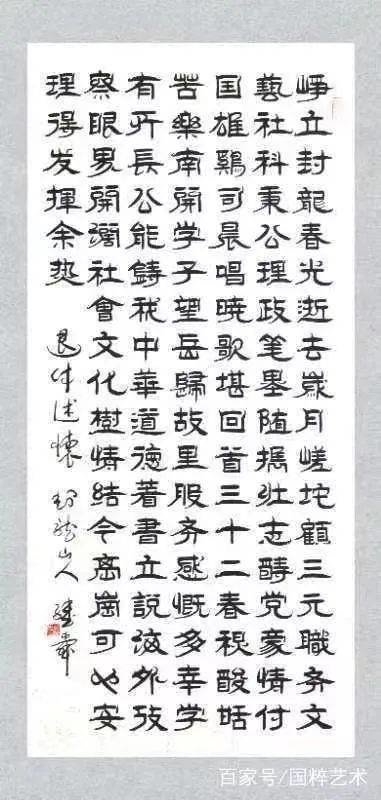 峥立封龍春光逝去歲月嵯坨顧三元職务文
藝社科秉公理政笔墨随携壮志酧党豪情付
国雄鷄司晨唱曉歌堪回首三十二春秋酸甜
苦樂南開学子望岳歸故里服务感慨多幸学
有所長公能鋳我中華道德著書立説海外攷
察眼界開濶社會文化樹情结今离崗可心安
理得发揮余热
退休述懷 封龍山人
百家号/国粹艺术